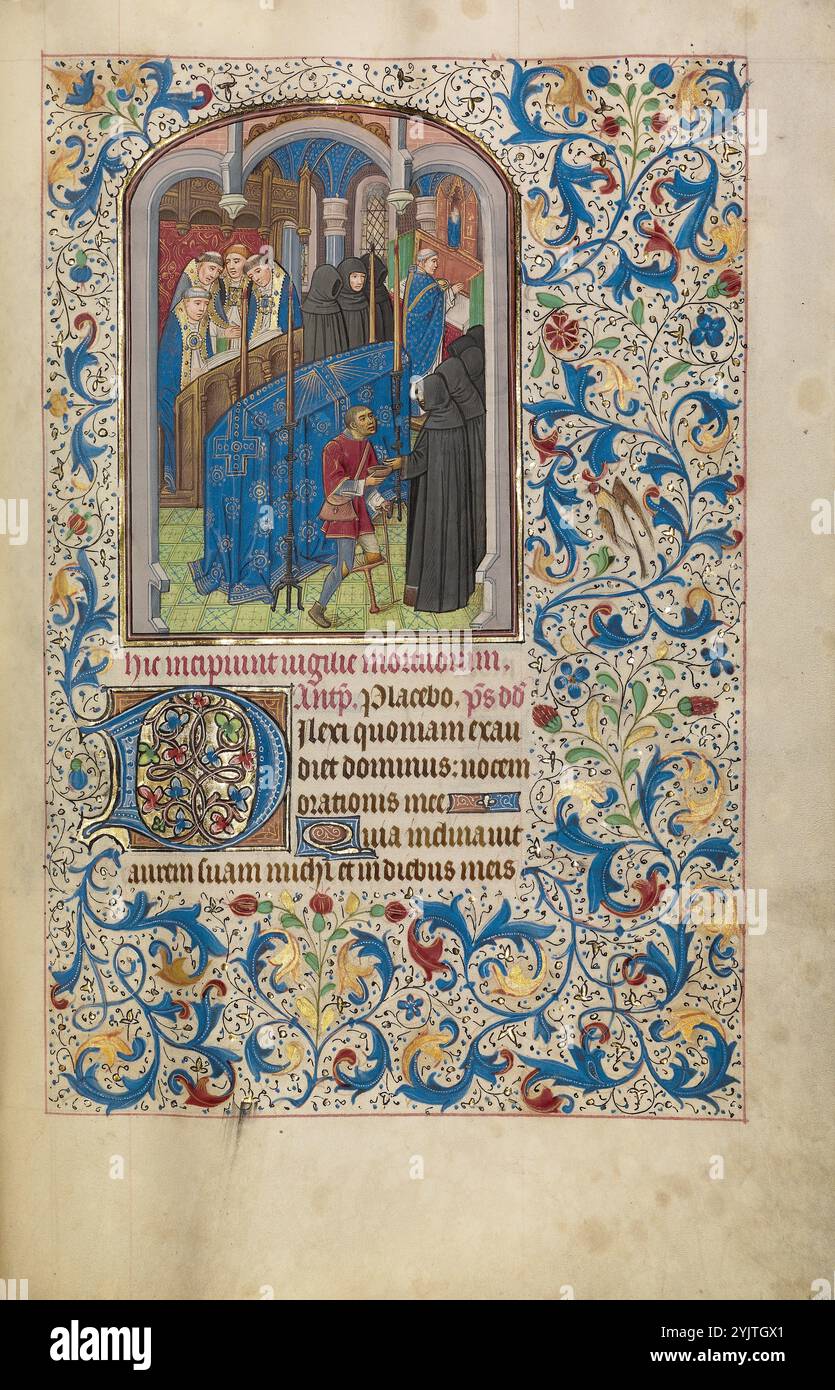 hic incipiunt uigilie mortuorum.
Antp̄. Placebo. p̄s dd̄
Dilexi quoniam exau
diet dominus: uocem
orationis mee
Quia inclinauit
aurem suam michi et in diebus meis
alamy
Image ID: 2YJTGX1
www.alamy.com